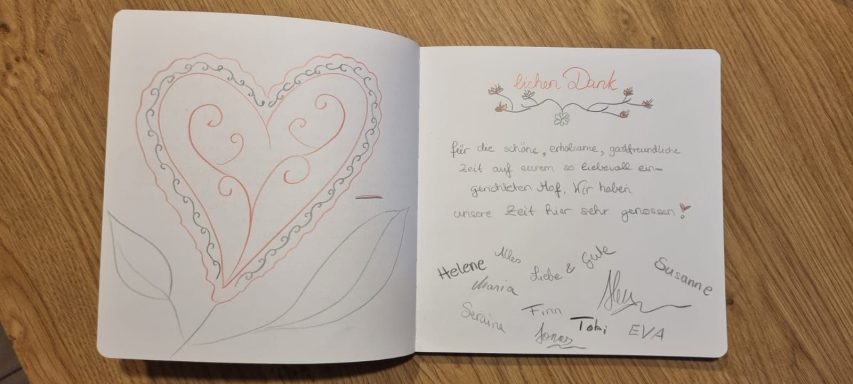 lichen Dank
für die schöne, erholsame, gastfreundliche
Zeit auf eurem so liebevoll ein-
gerichteten Hof. Wir haben
unsere Zeit hier sehr genossen!
Alles Liebe & Gute
Helene
Susanne
Maria
Seraina
Finn
Tobi
EVA
Jonas